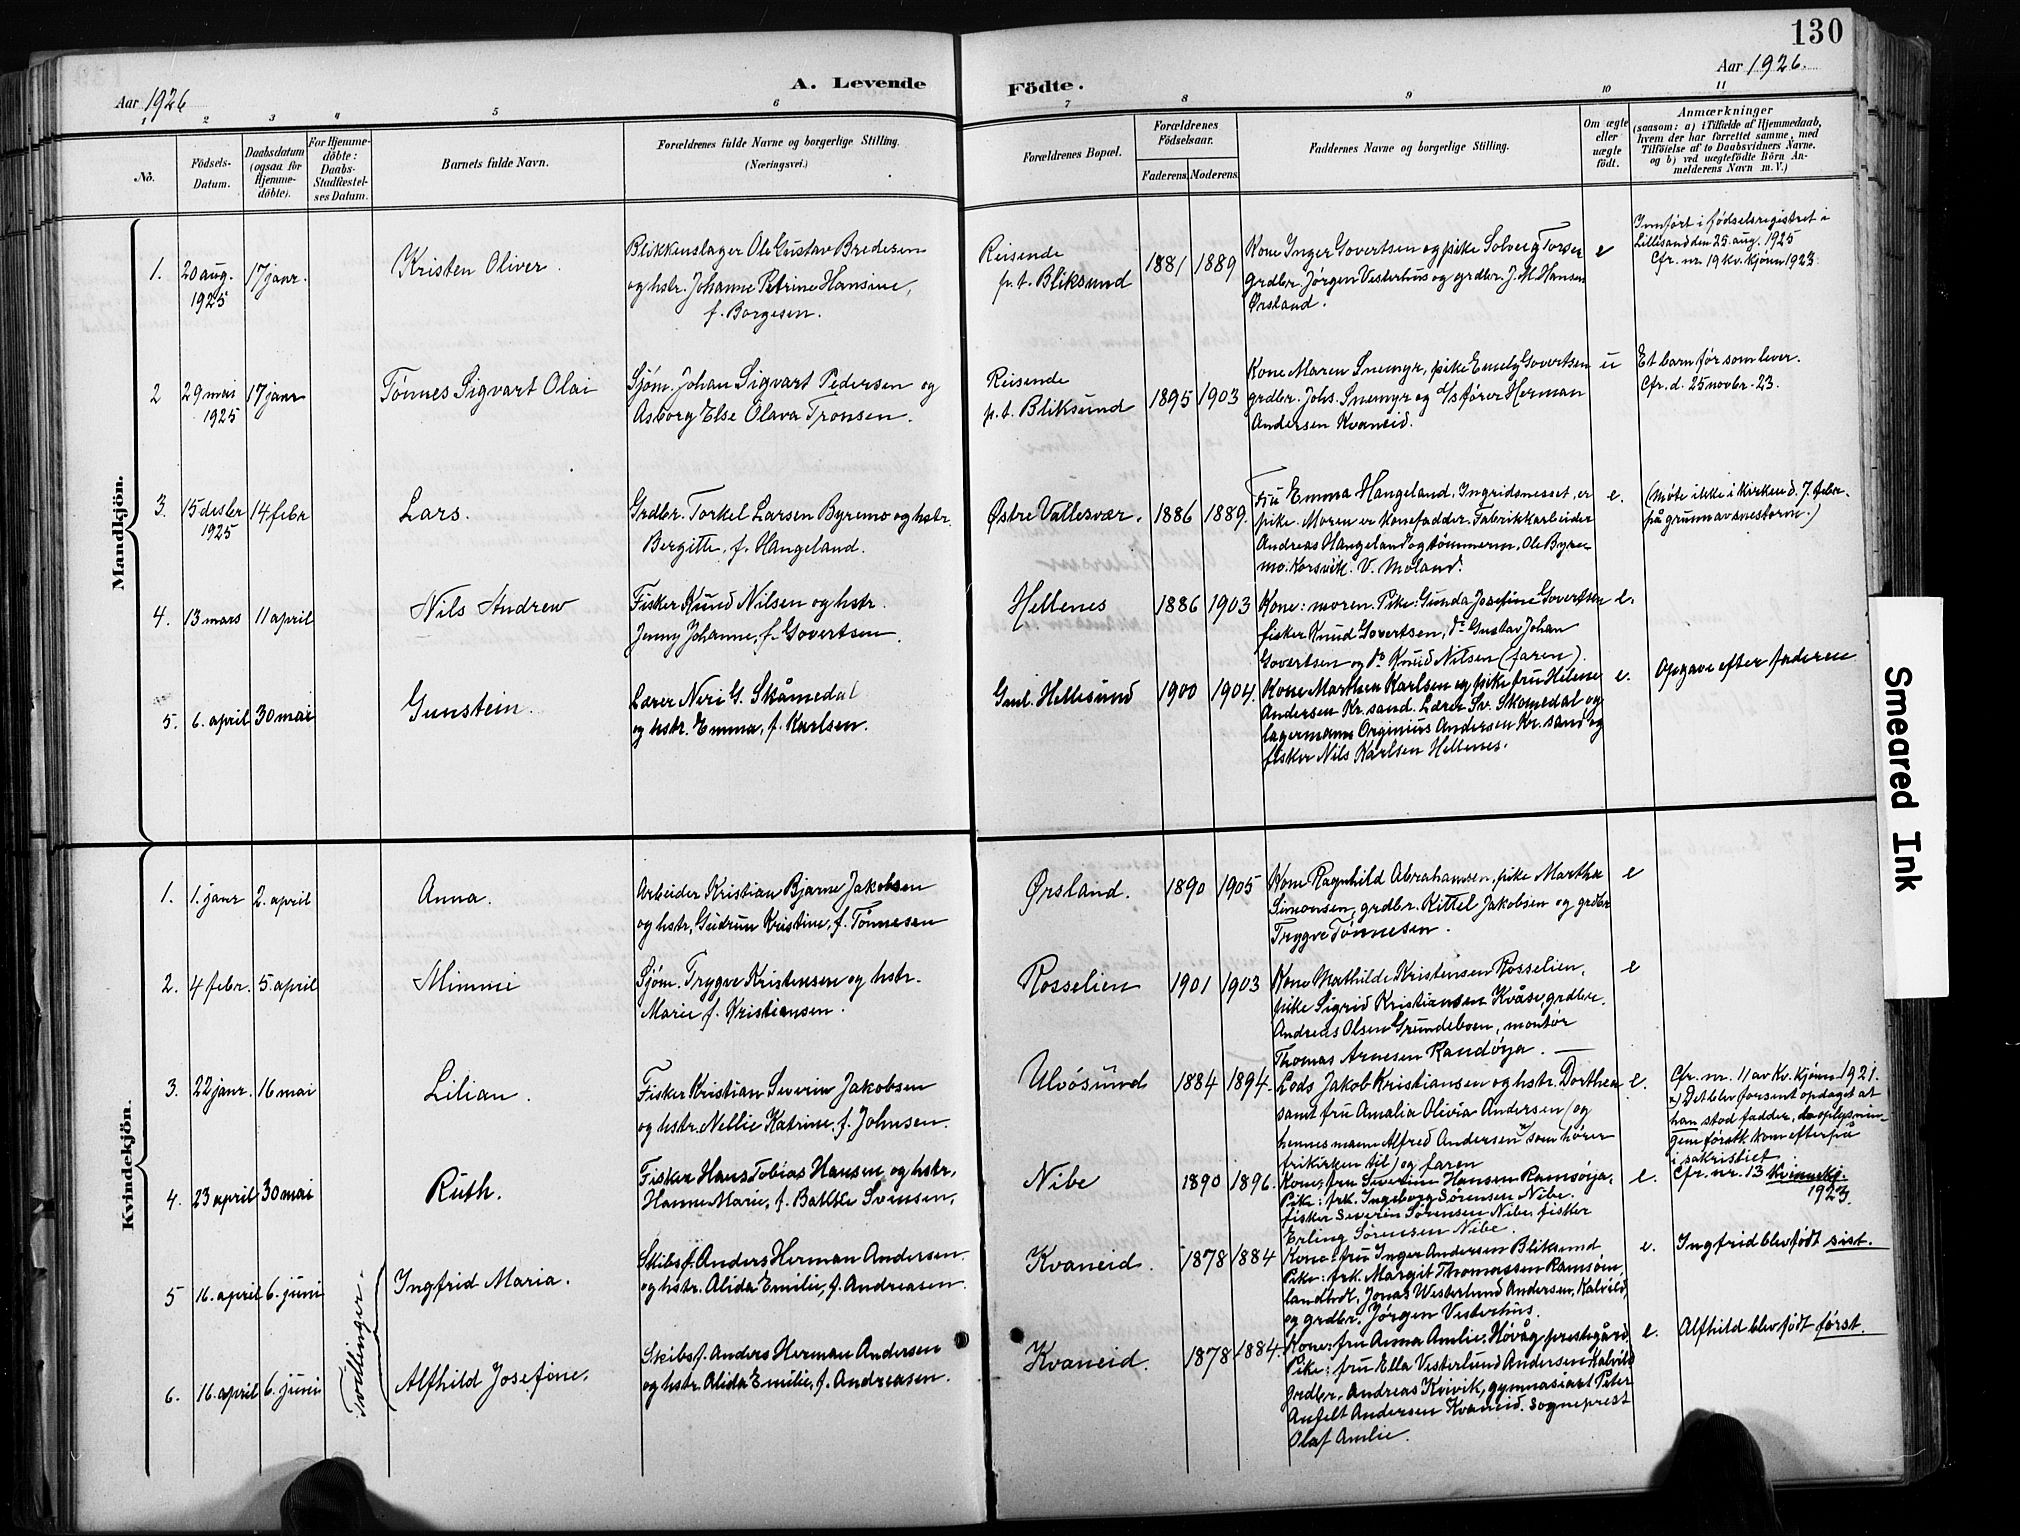 130
Aar 1926
A. Levende
Födte.
Aar 1926.
1 2 3 4 5 6 7 8 9 10 11
No.
Födsels-
Datum.
Daabsdatum
(ogsaa for
Hjemme-
döbte).
For Hjemme-
döbte:
Daabs-
Stadfæstel-
ses Datum.
Barnets fulde Navn.
Forældrenes fulde Navne og borgerlige Stilling.
(Næringsvei.)
Forældrenes Bopæl.
Forældrenes
Födselsaar.
Faderens. Moderens.
Faddernes Navne og borgerlige Stilling.
Om ægte
eller
uægte
födt.
Anmærkninger
(saasom: a) i Tilfælde af Hjemmedaab,
hvem der har forrettet samme, med
Tilföielse af to Daabsvidners Navne,
og b) ved uægtefödte Börn An-
melderens Navn m. V.)
Mandkjön.
1. 20 aug. 1925
17 janr.
Kristen Oliver.
Blikkenslager Ole Gustav Bredesen
og hstr. Johanne Petrine Hansine,
f. Borgesen.
Reisende
p. t. Bliksund
1881 1889
Kone Inger Govertsen og pike Solverg Torsen
grdbr. Jørgen Vesterhus og grdbr. J. M. Hansen
Ørsland.
e
Innført i fødselsregistret i
Lillesand den 25 aug. 1925
Cfr. nr. 19 kv. kjønn 1923.
2 29 mai 1925
17 janr
Tønnes Sigvart Olai
Sjøm. Johan Sigvart Pedersen og
Asborg Else Olava Tronsen.
Reisende
p. t. Bliksund
1895 1903
Kone Maren Snemyr, pike Emely Govertsen
grdbr. Johs. Snemyr og d/s fører Herman
Andersen Kvaneid.
u
Et barn før som lever.
Cfr. d. 25 novbr. 23.
3. 15 desbr 1925
14 febr
Lars.
Grdbr. Torkel Larsen Byremo og hstr.
Bergitte, f. Hangeland.
Østre Vallesvær.
1886 1889.
Fru Emma Hangeland, Ingridsnesset, er
pike. Moren er konefadder. Fabrikkarbeider
Andreas Hangeland og tømmerm. Ole Byre-
mo. Korsvik. V. Moland.
e.
(Møte ikke i kirken d. 7. febr.
på grunn av snestorm.)
4. 13 mars 11 april
Nils Andrew
Fisker Knud Nilsen og hstr.
Jenny Johanne, f. Govertsen.
Hellenes
1886 1903
Kone: moren. Pike: Gunda Josefine Govertsen
fisker Knud Govertsen, do Gustav Johan
Govertsen og do Knud Nilsen (faren).
e.
5. 6. april 30 mai
Gunstein.
Lærer Neri G. Skåmedal
og hstr. Emma, f. Karlsen.
Gml. Hellesund
1900 1904.
Kone Marthea Karlsen og pike fru Helene
Andersen Kr. sand. Lærer Sv. Skomedal og
lagermann Orginius Andersen Kr. sand og
fisker Nils Karlsen Hellenes.
e.
Opgave efter faderen
Kvindekjön.
1. 1. janr 2. april
Anna.
Arbeider Kristian Bjarne Jakobsen
og hstr. Gudrun Kristine, f. Tønnesen
Ørsland.
1890 1905
Kone Ragnhild Abrahamsen, pike Martha
Simonsen, grdbr. Kittel Jakobsen og grdbr
Trygve Tønnesen.
e
2. 4 febr. 5. april
Mimmi
Sjøm. Trygve Kristensen og hstr.
Marie f. Kristiansen.
Rosselien
1901 1903
Kone Mathilde Kristensen Rosselien,
pike Sigrid Kristiansen Kvåse, grdbre.
Andreas Olsen Grundeboen, montør
Thomas Arnesen Randøya.
e
3. 22 janr. 16 mai
Lilian.
Fisker Kristian Severin Jakobsen
og hstr. Nellie Katrine, f. Johnsen.
Ulvøsund
1884 1894.
Lods Jakob Kristiansen og hstr. Dorthea
samt fru Amalia Olivia Andersen (og
hennes mann Alfred Andersen x) som hører
frikirken til) og faren
e.
Cfr. nr. 11 av kv. kjønn 1921.
x) Det blev forsent opdaget at
han stod fadder, da oplysnin-
gen først kom efterpå
i sakristiet.
4. 23 april 30 mai
Ruth.
Fisker Hans Tobias Hansen og hstr.
Hanne Marie, f. Svensen,
Nibe
1890 1896.
Kone: fru Severine Hansen Ramsøya,
Pike: frk. Ingeborg Sørensen Nibe.
fisker Severin Sørensen Nibe, fisker
Erling Sørensen Nibe.
e.
Cfr. nr. 13 kvinnekj.
1923
5 16. april 6. juni
Tvillinger.
Ingfrid Maria.
Skibsf. Anders Herman Andersen
og hstr. Alida Emilie, f. Andreasen.
Kvaneid.
1878 1884
Kone: fru Inger Andersen Bliksund
Pike: frk. Margit Thomassen Ramsøen,
landhdl. Jonas Westerlund Andersen, Kalvild
og grdbr. Jørgen Vesterhus.
e.
Ingfrid blev født sist.
6. 16 april 6. juni
Alfhild Josefine.
Skibsf. Anders Herman Andersen
og hstr. Alida Emilie, f. Andreasen.
Kvaneid.
1878 1884.
Kone: fru Anna Amlie, Høvåg prestegård,
Pike: fru Ella Vesterlund Andersen Kalvild
grdbr. Andreas Kvivik, gymnasiast Peter
Anfelt Andersen Kvaneid. sogneprest
Olaf Amlie.
e.
Alfhild blev født først.
Smeared Ink